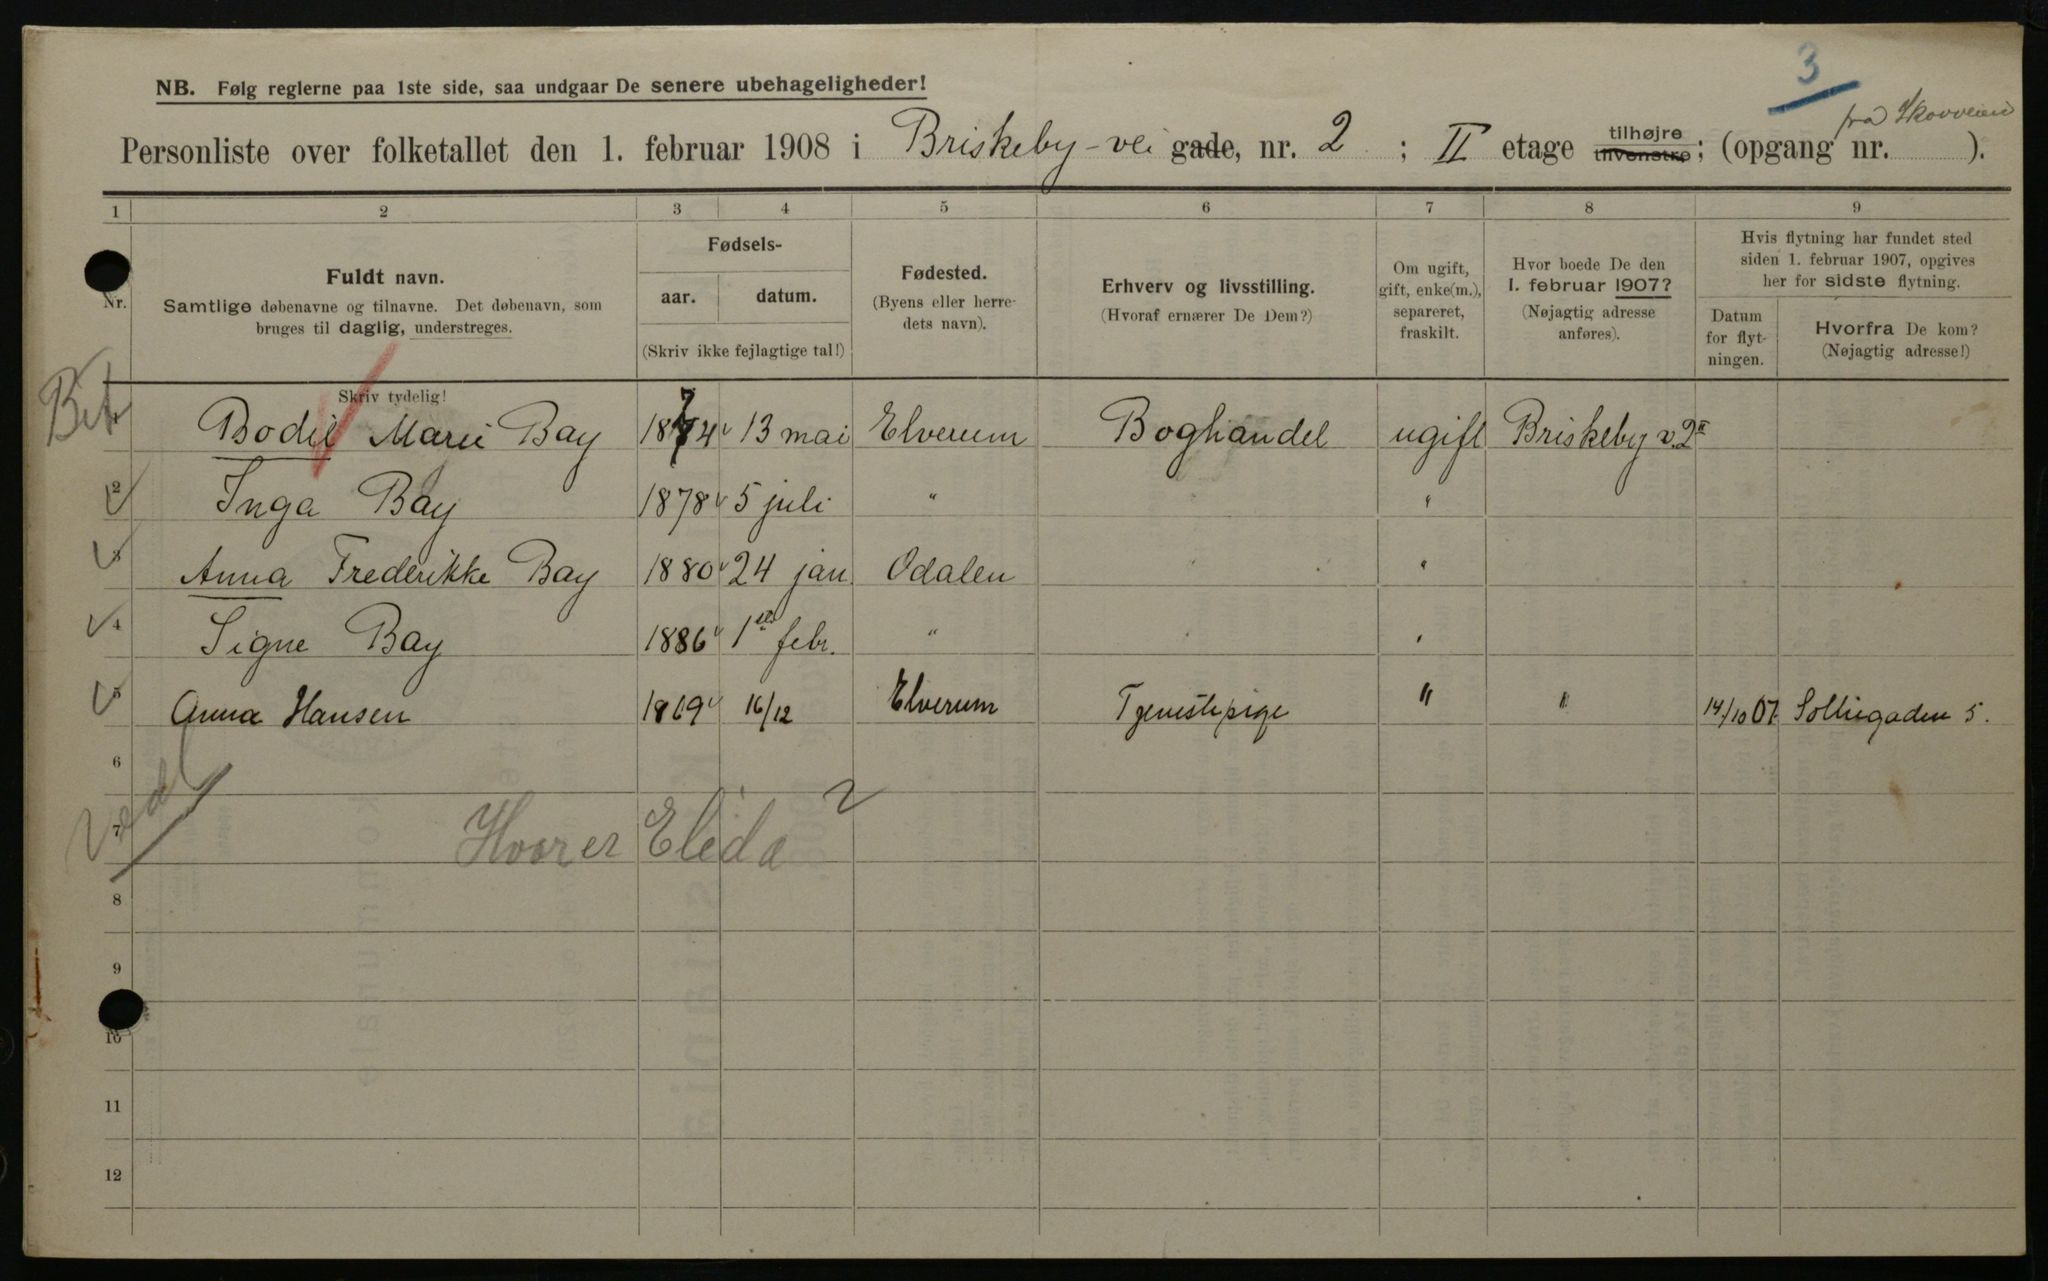 3
NB. Følg reglerne paa 1ste side, saa undgaar De senere ubehageligheder!
fra Skovveien
Personliste over folketallet den 1. februar 1908 i Briskeby-vei gade, nr. 2 ; II etage tilhøjre tilvenstre; (opgang nr. ).
1 2 3 4 5 6 7 8 9
Nr.
Fuldt navn.
Samtlige døbenavne og tilnavne. Det døbenavn, som
bruges til daglig, understreges.
Skriv tydelig!
Fødsels-
aar. datum.
(Skriv ikke fejlagtige tal!)
Fødested.
(Byens eller herre-
dets navn).
Erhverv og livsstilling.
(Hvoraf ernærer De Dem?)
Om ugift,
gift, enke(m.),
separeret,
fraskilt.
Hvor boede De den
1. februar 1907?
(Nøjagtig adresse
anføres).
Hvis flytning har fundet sted
siden 1. februar 1907, opgives
her for sidste flytning.
Datum
for flyt-
ningen.
Hvorfra De kom?
(Nøjagtig adresse!)
1 Bodil Marie Bay 1874 13 mai Elverum Boghandel ugift Briskeby v. 2 II
2 Inga Bay 1878 5 juli " "
3 Anna Frederikke Bay 1880 24 jan. Odalen " "
4 Signe Bay 1886 1ste febr. " " "
5 Anna Hansen 1869 16/12 Elverum Tjenestepige " " 14/10 07 Solliegaden 5.
6
7 Hvor er Elida
8
9
10
11
12